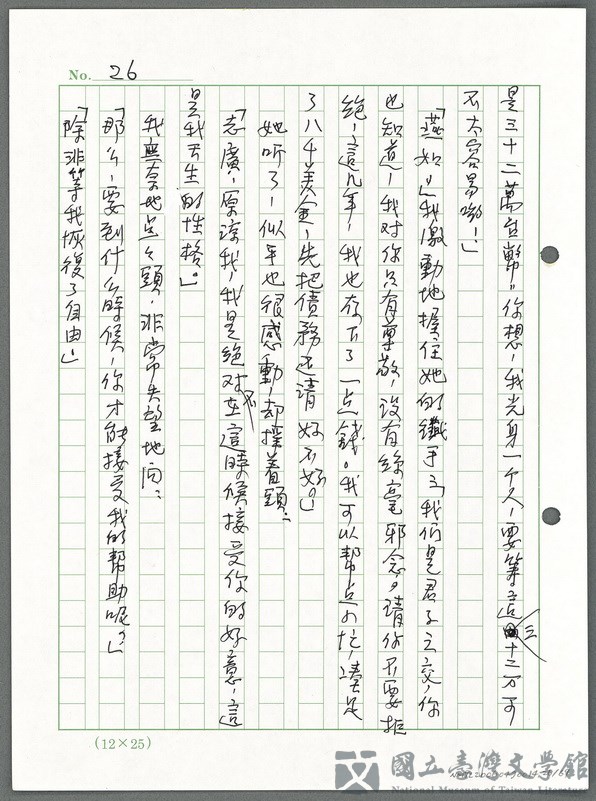 No. 26
是三十二萬台幣。你想，我光身一个人，要籌這三十二万可
不太容易喲！」
「燕如」，我激動地握住她的纖手：「我们是君子之交，你
也知道，我对你只有尊敬，没有絲毫邪念，請你不要拒
絕，這几年，我也存下了一点錢。我可以帮点小忙，湊足
了八千美金，先把債務还清好不好？」
她听了，似乎也很感動，却摇着頭：
「志廣，原諒我，我是絕对不在這時候接受你的好意，這
是我天生的性格。」
我無奈地点々頭，非常失望地问：
「那么，要到什么時候，你才能接受我的幫助呢？」
「除非等我恢復了自由」
(12×25)
國立臺灣文學館
National Museum of Taiwan Literature